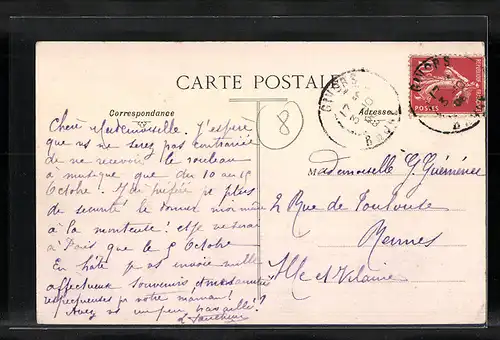 CARTE POSTALE
Correspondance
Adresse
8
GIVORS
RHONE
POSTES
Chère Mademoiselle. J'espère
que vs ne serez pas contrariée
de ne recevoir le rouleau
à musique que du 10 au 15
Octobre. J'ai préféré pr plus
de sécurité le donner moi même
à la monteuse et je ne serai
à Paris que le 8 Octobre
En hâte je vs envoie mille
affectueux souvenirs
respectueuses pr votre maman!
Avez vs un peu travaillé?
Mademoiselle G
2 Rue de Toulouse
Rennes
Ille et Vilaine